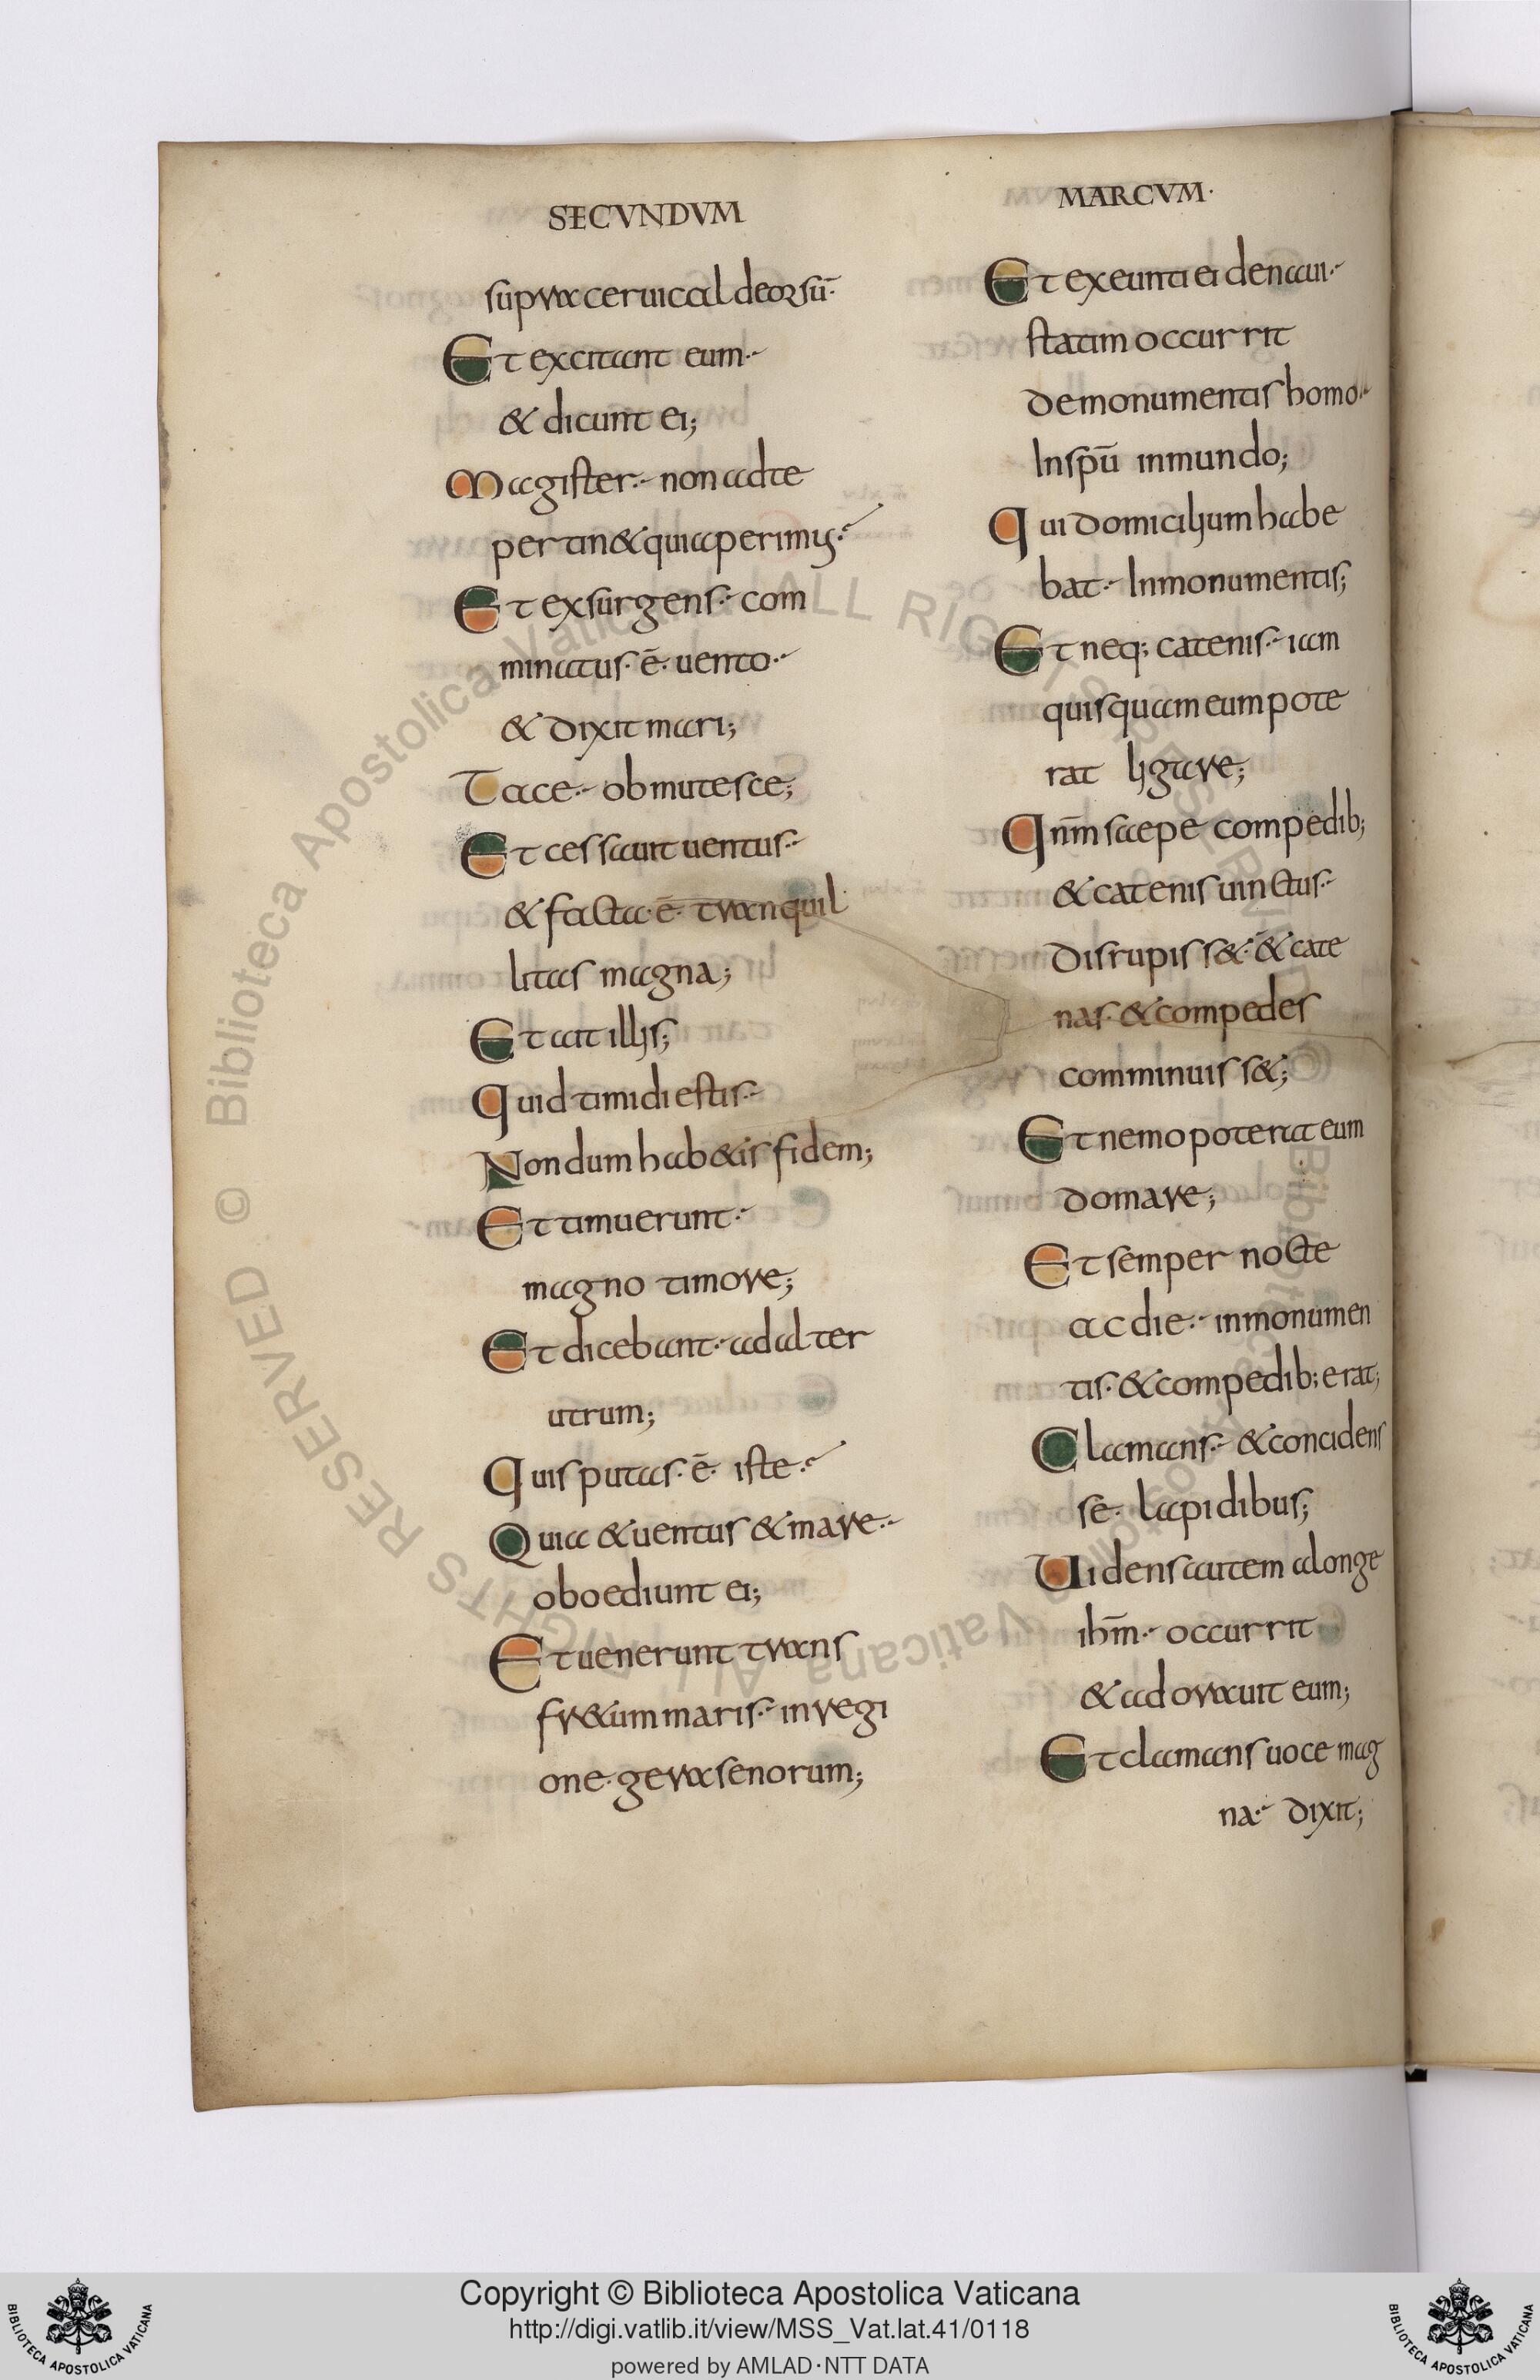 SECVNDVM
supra ceruical deorsū·
Et excitant eum·
& dicunt ei;
Magister· non adte
pertin& quia perimus·
Et exsurgens· com
minatus· ē· uento·
& dixit mari;
Tace· obmutesce;
Et cessauit uentus·
& facta· ē· tranquil
litas magna;
Et ait illis;
Quid timidi estis·
Nondum hab&is fidem;
Et timuerunt·
magno timore;
Et dicebant· ad alter
utrum;
Quis putas· ē· iste·
Quia & uentus & mare·
oboediunt ei;
Et uenerunt trans
fr&um maris· in regi
one· gerasenorum;
MARCVM·
Et exeunti ei denaui·
statim occurrit
demonumentis homo·
Inspū inmundo;
Qui domicilium habe
bat· Inmonumentis;
Et neq; catenis· iam
quisquam eum pote
rat ligare;
Qnm̄ saepe compedib;
& catenis uinctus·
disrupiss&· & cate
nas· & compedes
comminuiss&;
Et nemo poterat eum
domare;
Et semper nocte
ac die· inmonumen
tis· & compedib; erat;
Clamans· & concidens
se· lapidibus;
Uidens autem alonge
ihm̄· occurrit
& adorauit eum;
Et clamans uoce mag
na· dixit;
Copyright © Biblioteca Apostolica Vaticana
http://digi.vatlib.it/view/MSS_Vat.lat.41/0118
powered by AMLAD·NTT DATA
BIBLIOTECA APOSTOLICA VATICANA
BIBLIOTECA APOSTOLICA VATICANA
© Biblioteca Apostolica Vaticana ALL RIGHTS RESERVED
© Biblioteca Apostolica Vaticana ALL RIGHTS RESERVED